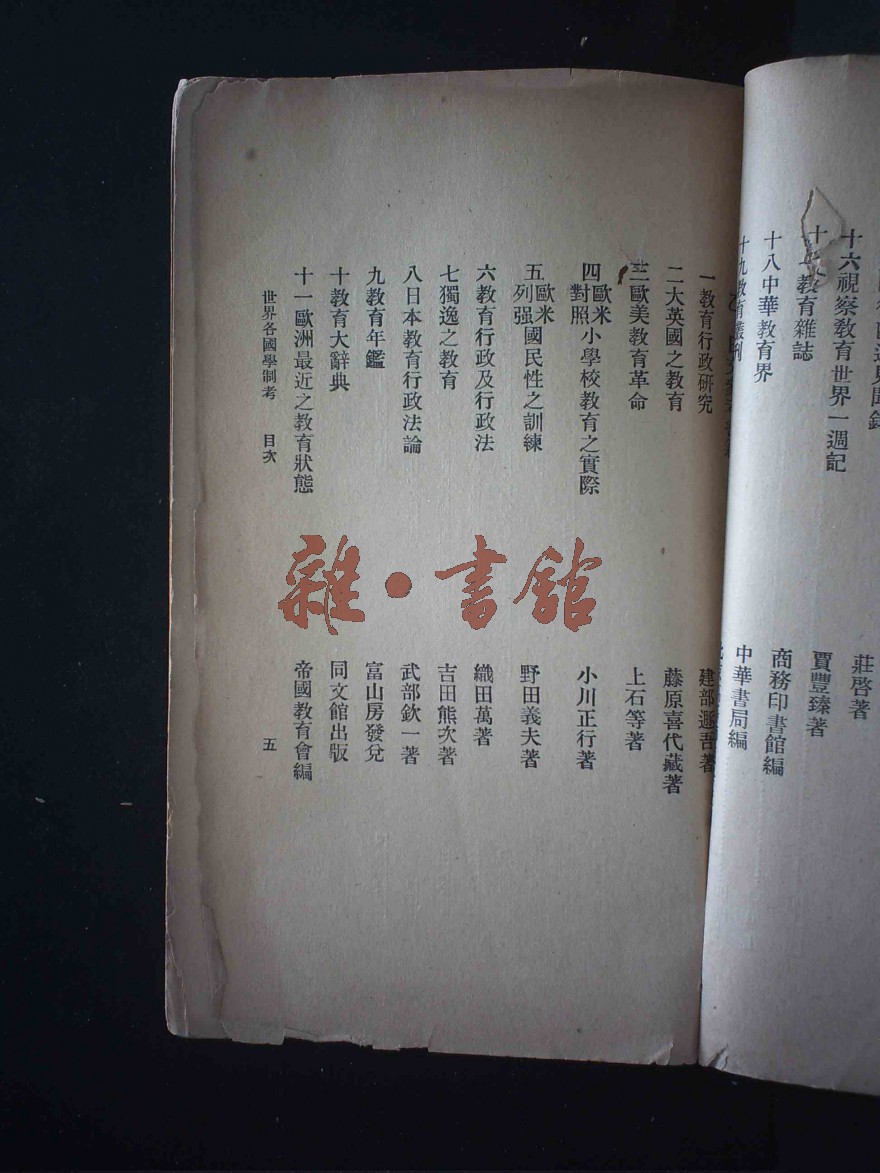 十六視察教育世界一週記 莊啓著
教育雜誌 賈豐臻著
十八中華教育界 商務印書館編
十九教育叢刊 中華書局編
一教育行政研究 建部遯吾著
二大英國之教育 藤原喜代藏著
三歐美教育革命 上石等著
四歐米對照小學校教育之實際 小川正行著
五歐米列强國民性之訓練 野田義夫著
六教育行政及行政法 織田萬著
七獨逸之教育 吉田熊次著
八日本教育行政法論 武部欽一著
九教育年鑑 富山房發兌
十教育大辭典 同文館出版
十一歐洲最近之教育狀態 帝國教育會編
世界各國學制考 目次 五
雜·書館